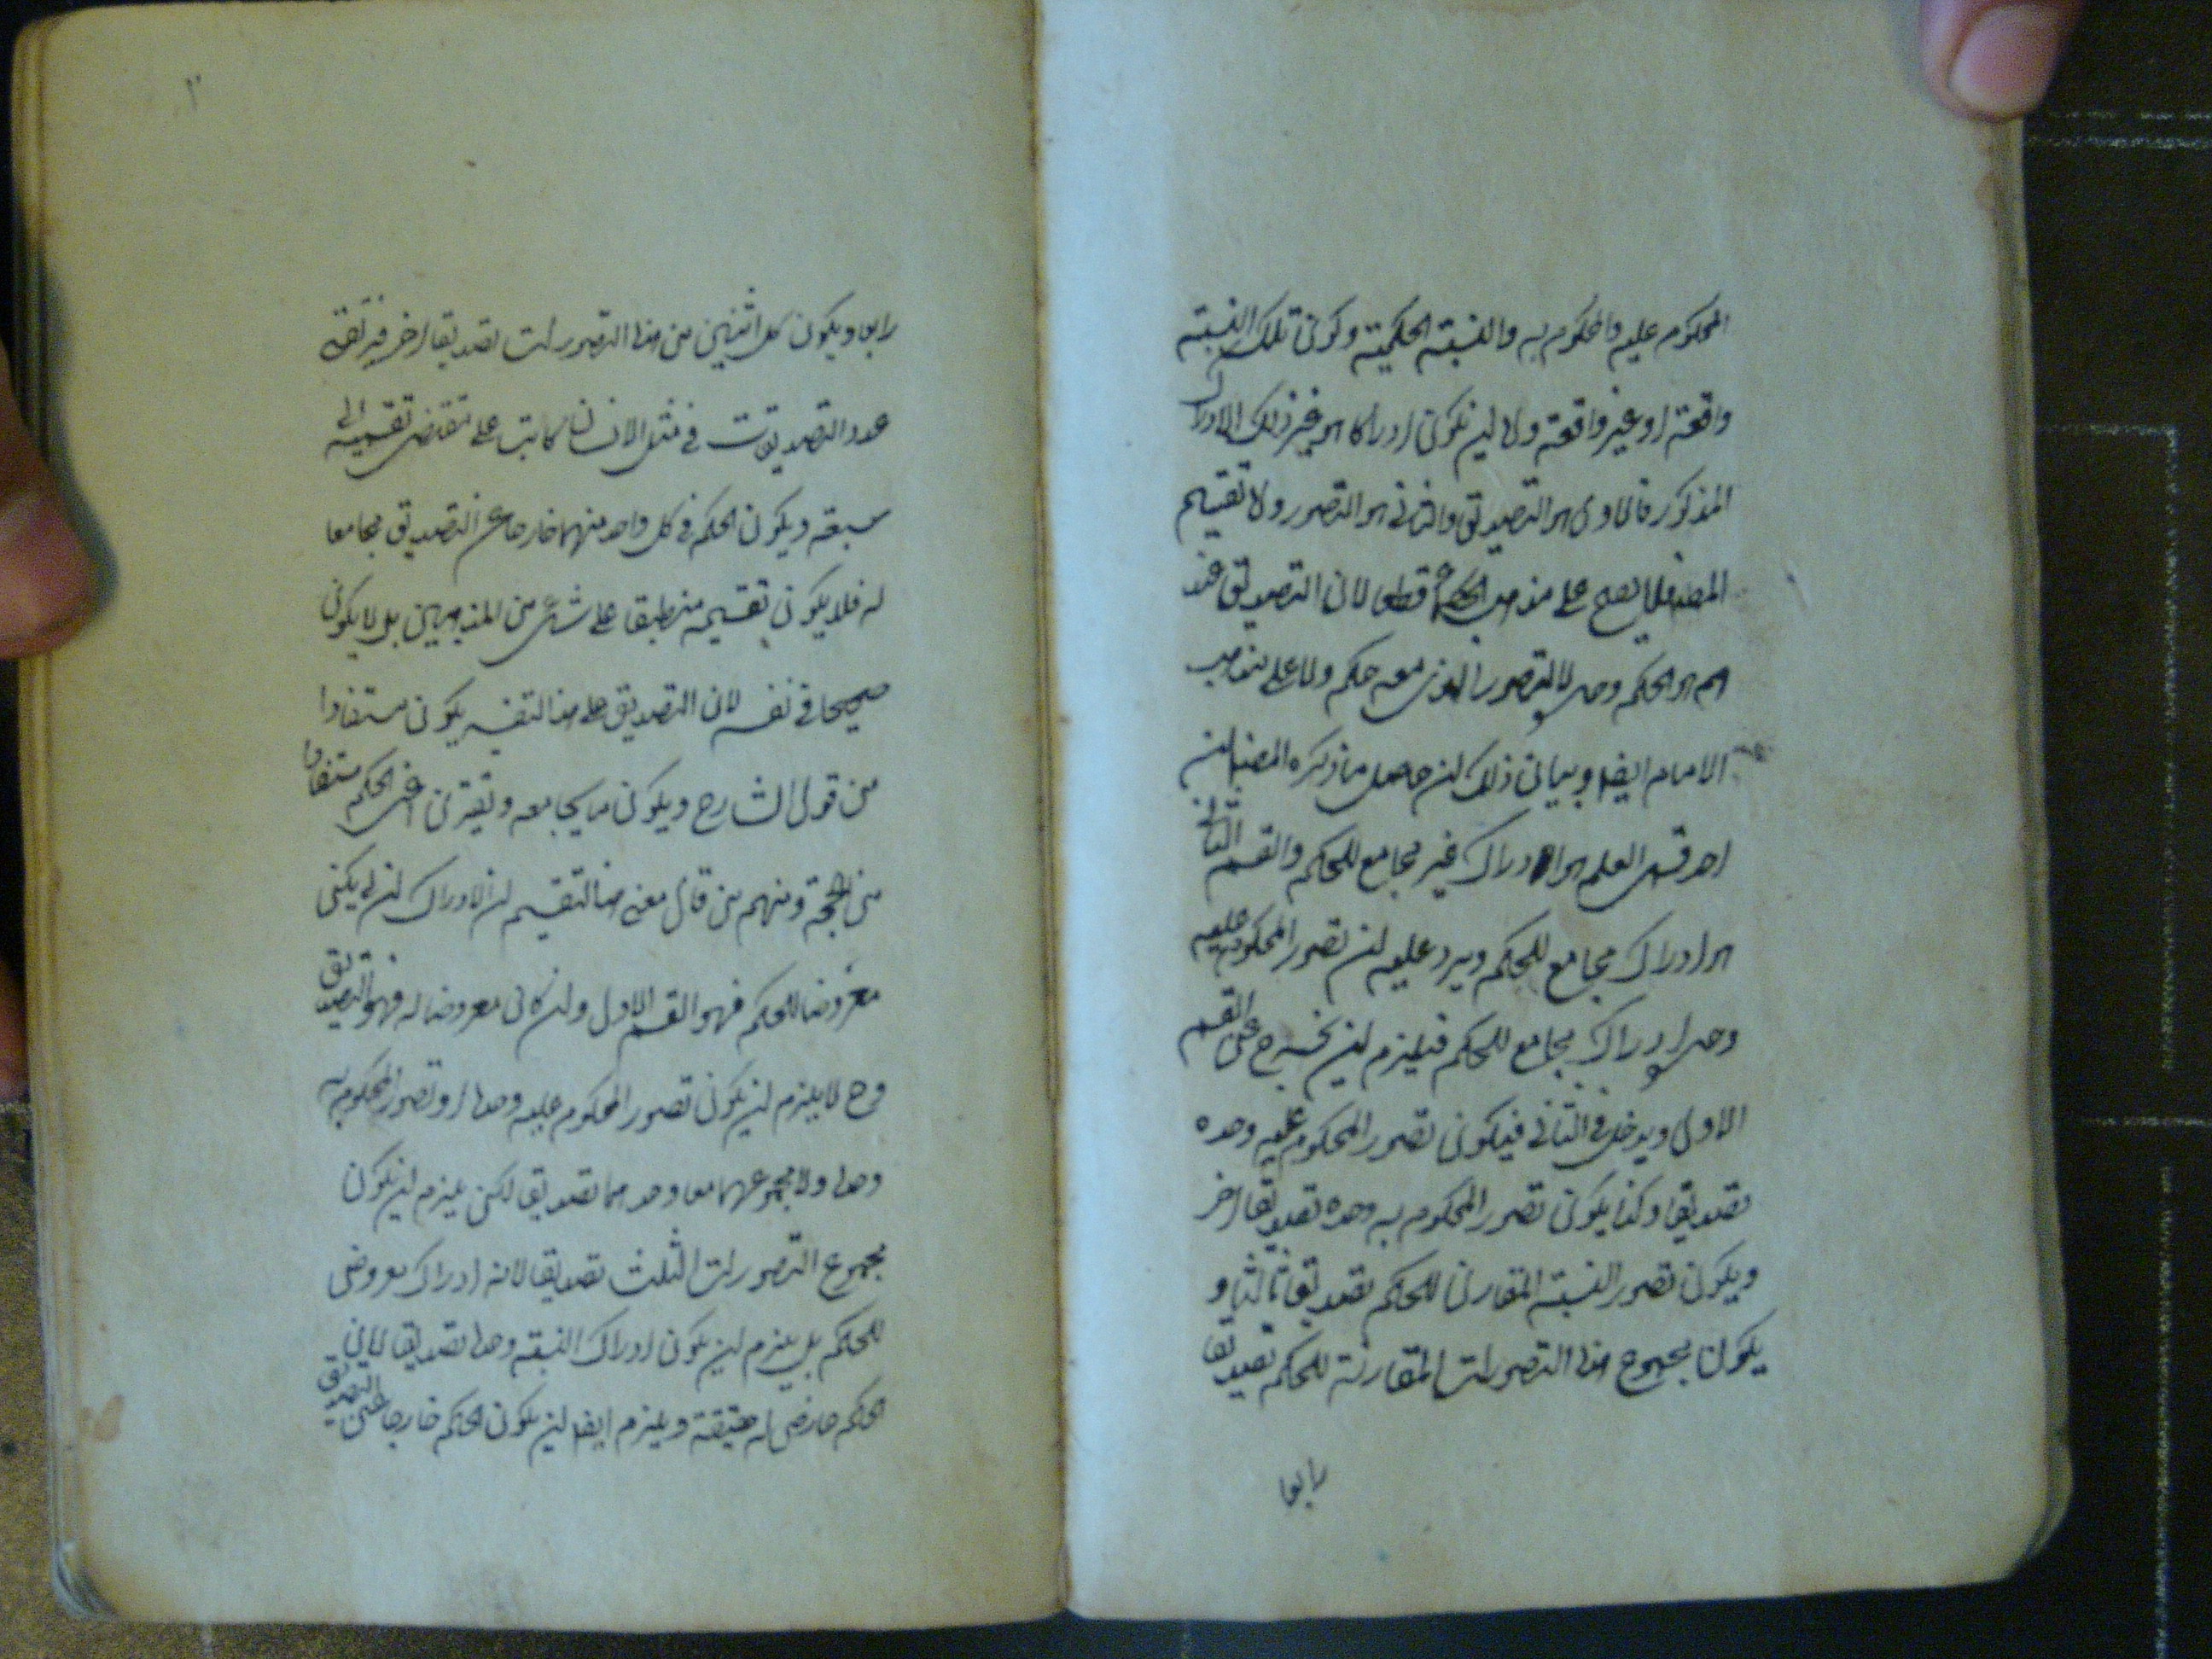 المحكوم عليه والمحكوم به والنسبة الحكمية وكون تلك النسبة
واقعة او غير واقعة ولا ان يكون ادراكا هو غير ذلك الادراك
المذكور فالاول هو التصديق والثانى هو التصور ولا تقسيم
المص فلا يصح على مذهب الحكماء قطعا لان التصديق عند
هم هو الحكم وحده لا التصور الذى معه حكم ولا على مذهب
الامام ايضا وبيان ذلك ان حاصل ما ذكره المص ان
احد قسمى العلم هو ادراك غير مجامع للحكم والقسم الثانى
هو ادراك مجامع للحكم ويرد عليه ان تصور المحكوم عليه
وحده ادراك مجامع للحكم فيلزم ان يخرج عن القسم
الاول ويدخل فى الثانى فيكون تصور المحكوم عليه وحده
تصديقا وكذا يكون تصور المحكوم به وحده تصديقا اخر
ويكون تصور النسبة المقارن للحكم تصديقا ثالثا و
يكون مجموع هذه التصورات المقارنة للحكم تصديقا
رابعا
٢
رابعا ويكون كل اثنين من هذه التصورات تصديقا اخر فيرتقى
عدد التصديقات فى مثل الانسان كاتب على مقتضى تقسيمه الى
سبعة ويكون الحكم فى كل واحد منها خارجا عن التصديق مجامعا
له فلا يكون تقسيمه منطبقا على شئ من المذهبين بل لا يكون
صحيحا فى نفسه لان التصديق على هذا التقسيم يكون مستفادا
من قول الشارح ويكون ما يجامعه ويقترن اعنى الحكم مستفادا
من الحجة ومنهم من قال معنى هذا التقسيم ان الادراك ان لم يكن
معروضا للحكم فهو القسم الاول وان كان معروضا له فهو التصديق
وح لا يلزم ان يكون تصور المحكوم عليه وحده او تصور المحكوم به
وحده ولا مجموعهما معا وحدهما تصديقا لكن يلزم ان يكون
مجموع التصورات الثلث تصديقا لانه ادراك معروض
للحكم بل يلزم ان يكون ادراك النسبة وحدها تصديقا لان
الحكم عارض له حقيقة ويلزم ايضا ان يكون الحكم خارجا عن التصديق